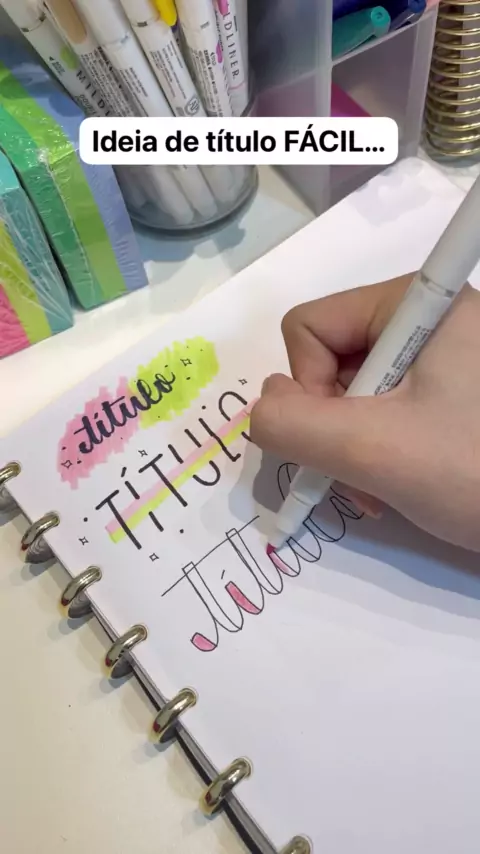 Ideia de título FÁCIL...
título
TÍTULO
título